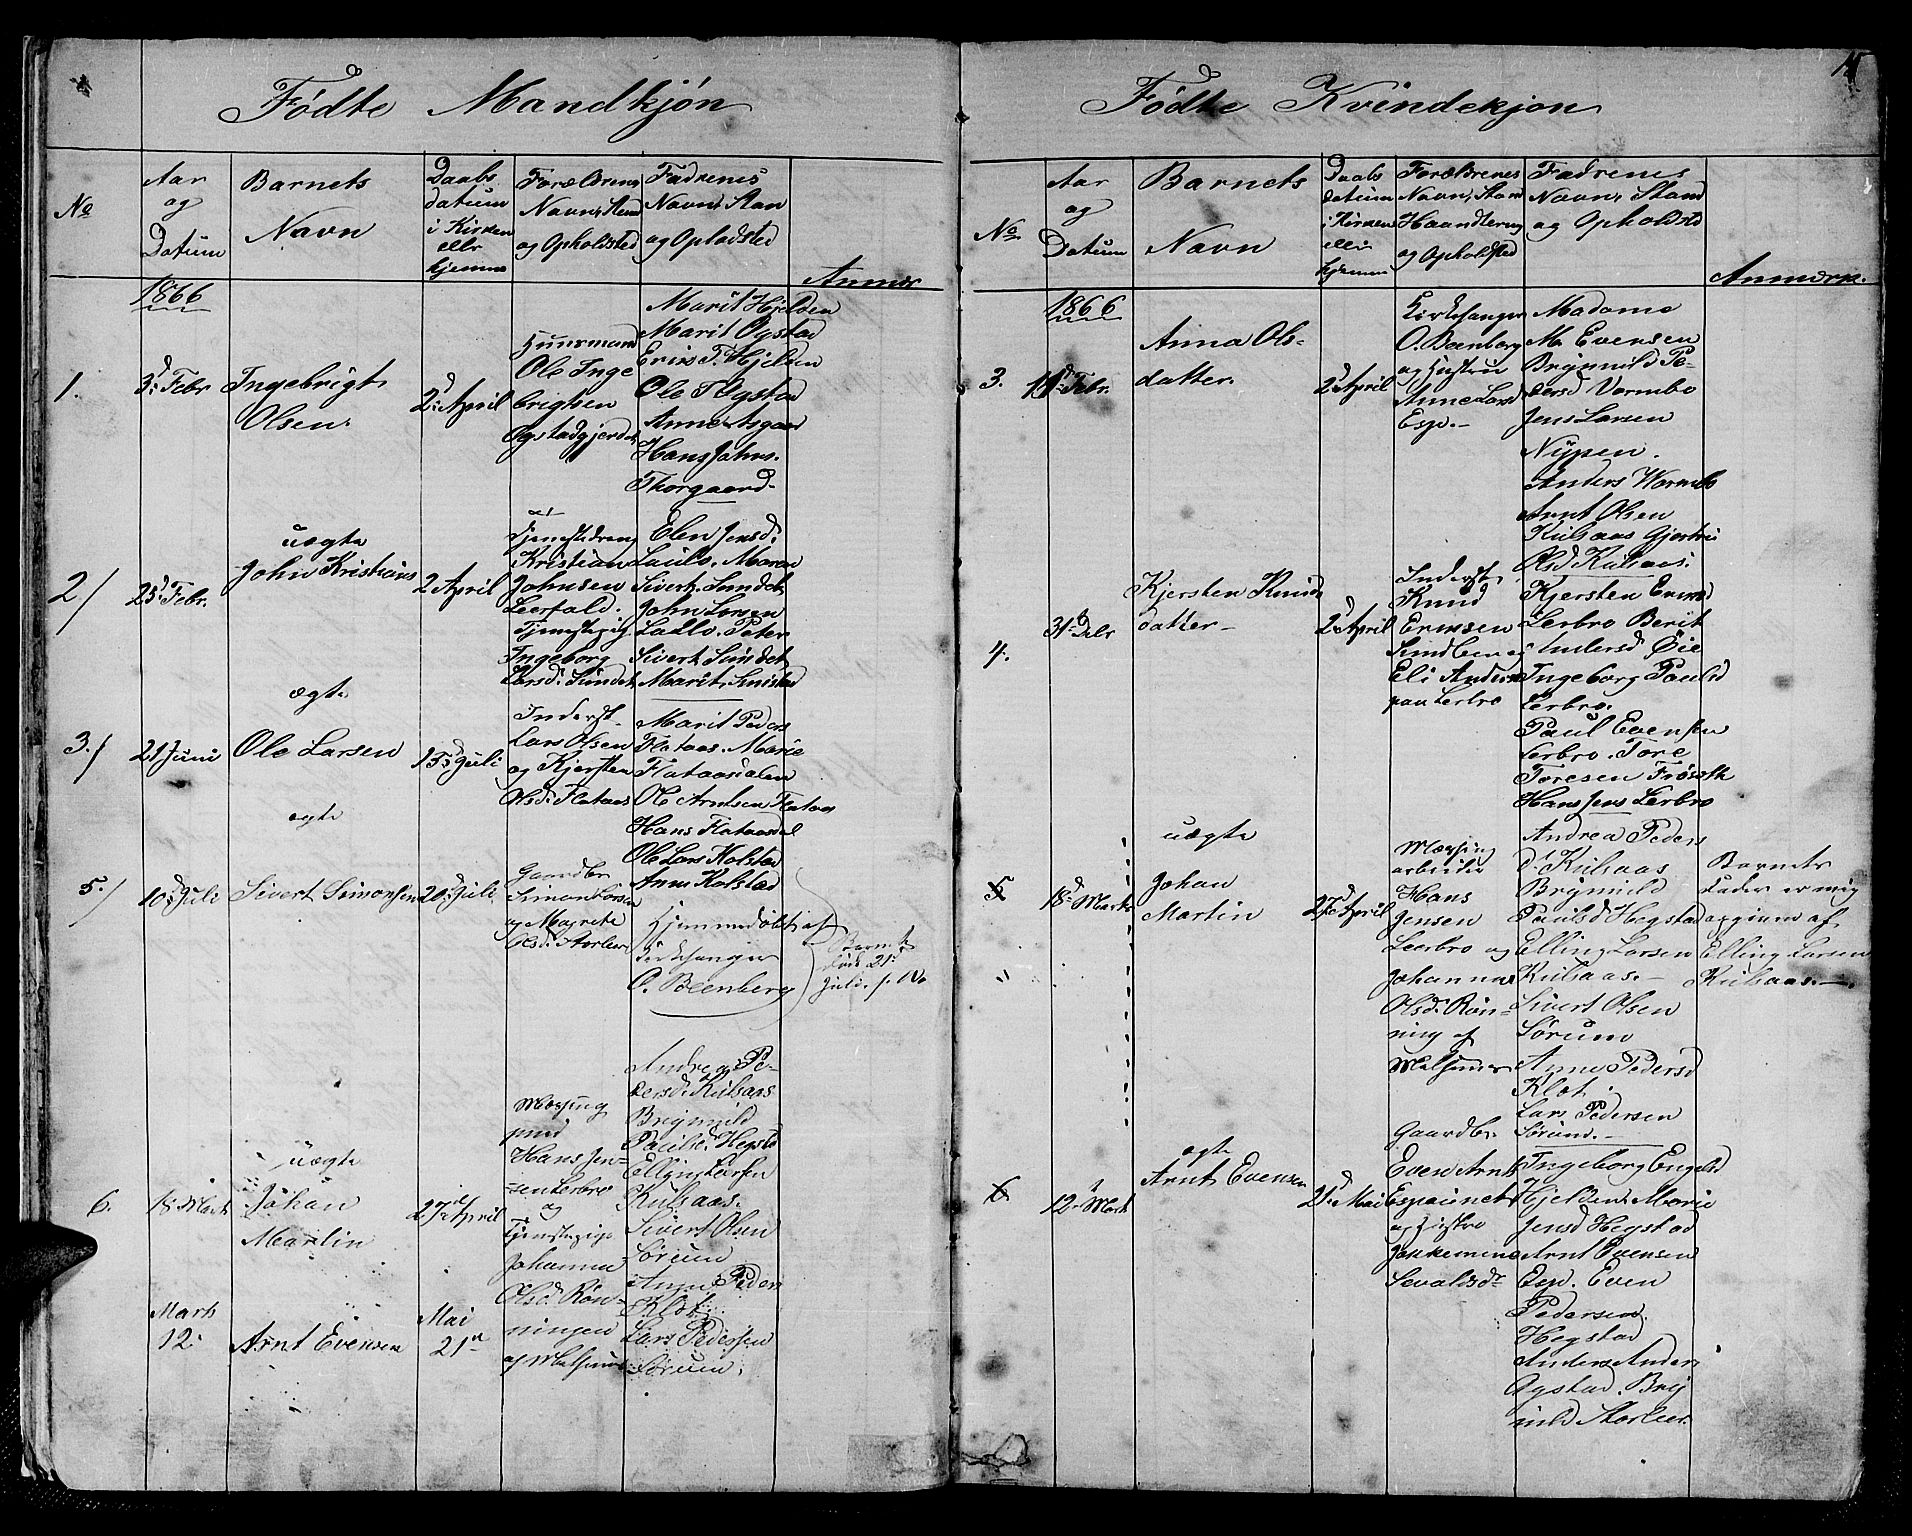 Fødte Mandkjøn
No
Aar
og
Datum
Barnets
Navn
Daabs
datum
i Kirken
eller
hjemme
Forældrenes
Navn, Stand
og Opholdsted
Fadrenes
Navn, Stan
og Opholdsted
Anmær
1866
1.
3d Febr
Ingebrigt
Olsen
2d April
Huusmand
Ole Inge
brigtsen
Øgstadgjerdet
Marit Hjelden
Marit Øgstad
Erik T. Hjelden
Ole T. Øgstad
Anne Asgaar
Hans Johns.
Thorgaard.
2/
25d Febr.
uægte
John Kristians
2 April
Tjenestedreng
Kristian
Johnsen
Leerfald.
Tjenestepig
Ingeborg
Larsd. Sundet
Elen Jensd.
Laulo. Maren
Sivert. Sundet
John Larsen
Laulo. Peter
Sivert. Sundet
Marit
3./
21 Juni
ægte
Ole Larsen
15d Juli
Inderst.
Lars Olsen
og Kjersten
Olsd. Flataas
Marit Peders
Flataas. Marie
Flataasdalen
Ole Arntsen Flataas
Hans Flataasdal
Ole Lars Kolstad
Anne Kolstad
5./
10d Juli
ægte
Sivert Simonsen
20d Juli
Gaardbr
Simon Larsen
og Magrete
Olsd.
Hjemmedøbt af
Kirkesanger
O. Beenberg
Barnet
døde 21d
Juli.
6.
18. Marts
uægte
Johan
Martin
27d April
Messing
smed
Hans Jen-
sen Lerbro
og
Tjenestepige
Johanna
Olsd. Røn-
ningen
af Melhuus
Andrea Pe-
dersd. Kulsaas
Brynnild
Paulsd. Hegstad
Elling Larsen
Kulsaas.
Sivert Olsen
Sørum
Anne Peders
Klöt
Lars Pedersen
Sørum.
Marts
12.
Arnt Evensen
Mai
21d
15
Fødte Kvindekjøn
No
Aar
og
Datum
Barnets
Navn
Daabs
datum
i Kirken
eller
hjemme
Forældrenes
Navn, Stand
Haandtering
og Opholdsted
Fadrenes
Navn, Stand
og Opholdsted
Anmærk.
1866
3.
11d Febr.
Anna Ols-
datter.
2d April
Kirkesanger
O. Beenberg
og Hustru
Anne Larsd
Esp.
Madame
M. Evensen
Brynnild Pe-
dersd Vormbo
Jens Larsen
Nypen.
Anders Wormbo
Arnt Olsen
Kulsaas Gjertru
Olsd Kulsaas.
4.
31
Kjersten Knuds
datter
2d April
Inderst
Knud
Eriksen
og
Eli Anders
Lerbro
Kjersten Eriksd
Lerbro Berit
Andersd Øie
Ingeborg Paulsd
Lerbro.
Paul Evensen
Lerbro. Tore
Toresen Frøseth
Hans Jens Lerbro
5
18d Marts
uægte
Johan
Martin
27de April
Messing
arbeider
Hans
Jensen
Leerbro og
Johanna
Olsd. Røn-
ning af
Melhuus
Andrea Peders
d. Kulsaas
Brynnild
Paulsd Hegstad
Elling Larsen
Kulsaas.
Sivert Olsen
Sørum
Anne Pedersd
Klöt
Lars Pedersen
Sørum.
Barnets
Fader er mig
opgiven af
Elling Larsen
Kulsaas.
6
12d Marts
ægte
Arnt Evensen
21d Mai
Gaardbr.
Even Arnts
Espaunet
og Hustro
Jakkemine
Sevaldsdr
Ingeborg Engelsd
Hjelden. Marie
Jensd Hegstad
Arnt Evensen
Esp. Even
Pedersen
Hegstad
Anders Anders
Øgstad. Bry
nild